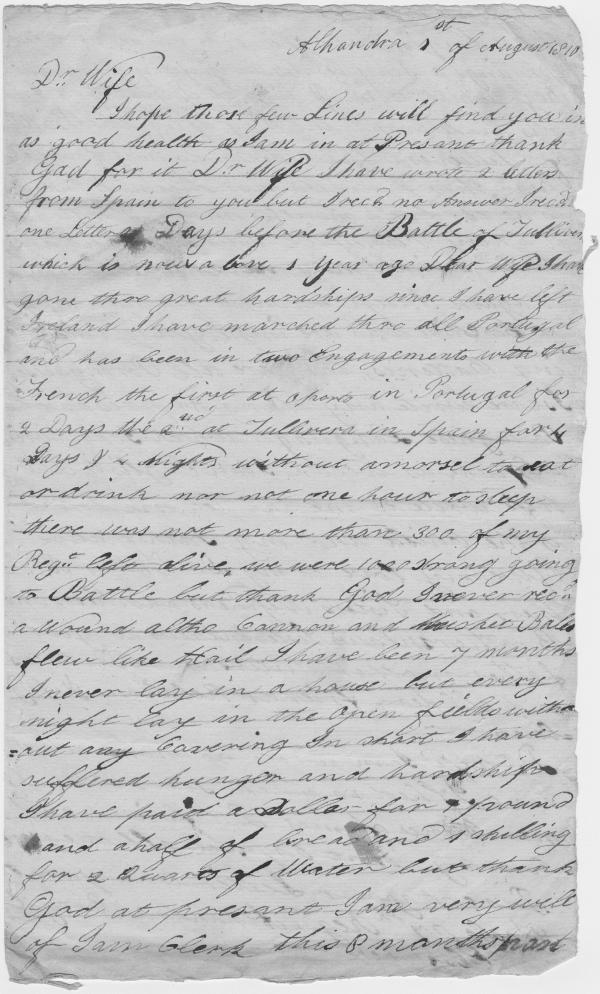 Alhandra 1st of August 1810
Dr. Wife
I hope those few Lines will find you in
as good health as I am in at Presant thank
God for it Dr. Wife I have wrote 2 letters
from Spain to you but I recd. no Answer I recd.
one Letter 2 Days before the Battle of Tullivera
which is now a bove 1 year ago Dear Wife I have
gone thro great hardships since I have left
Ireland I have marched thro all Portugal
and has been in two Engagements with the
French the first at oporto in Portugal for
2 Days the 2nd at Tullivera in Spain for 4
Days & 2 Nights without a morsel to eat
or drink nor not one hour to sleep
there was not more than 300 of my
Regt. left alive, we were 1000 strong going
to Battle but thank God I never recd.
a Wound altho Cannon and Musket Balls
flew like Hail I have been 7 months
I never lay in a house but every
night lay in the open fields with
=out any Covering In short I have
suffered hunger and hardship
I have paid a Dollar for 1 pound
and a half of bread and 1 shilling
for 2 Quarts of Water but thank
God at presant I am very well
of I am Clerk this 8 months past